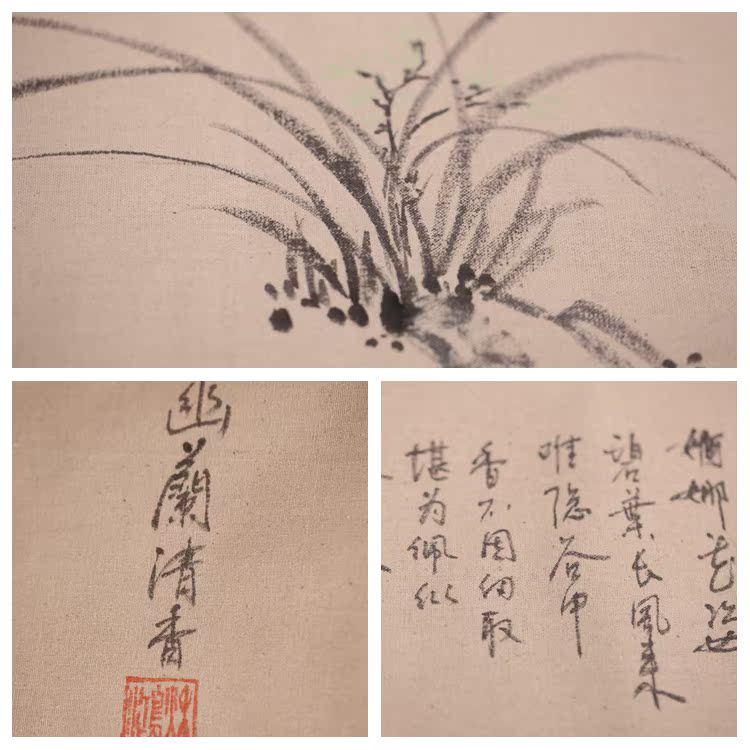 幽蘭清香
婀娜花姿
碧葉长風来
唯隐谷中
香不因纫取
堪为佩纵